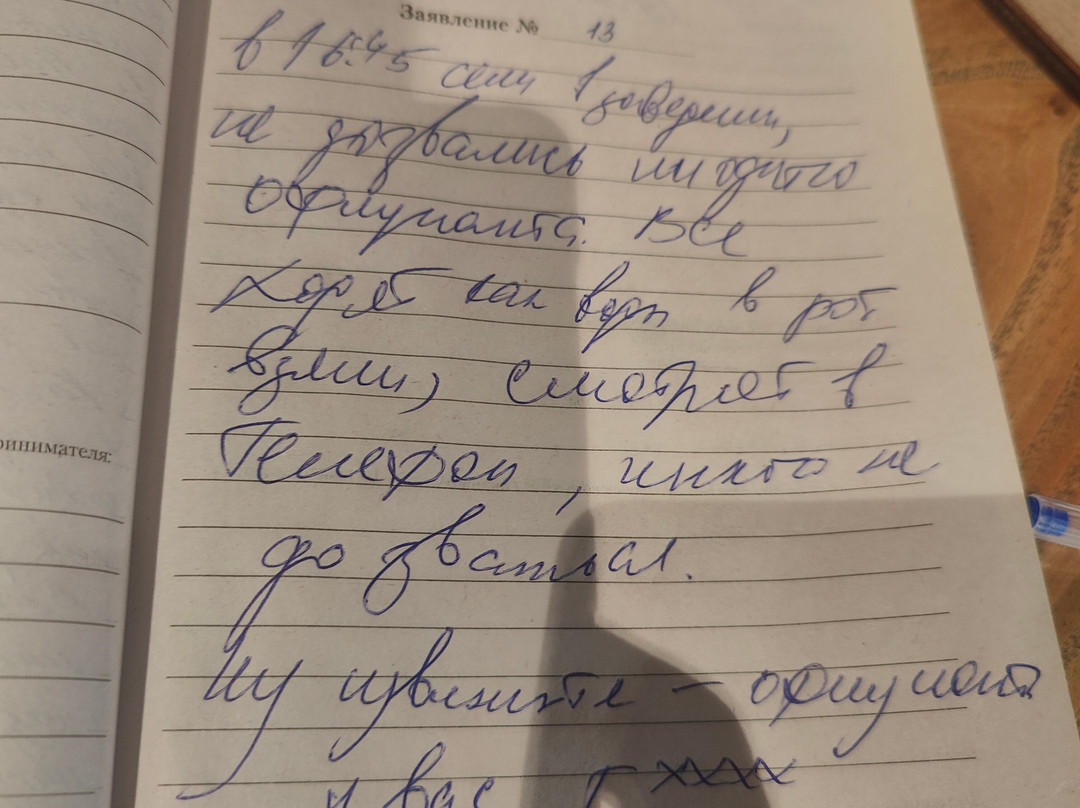 Заявление № 13
в 16:45 сели 1 заведении,
не дозвались ни одного
официанта. Все
Ходят как воды в рот
взяли, смотрят в
Телефон, никто не
дозваться.
Ну извините – официанты
у вас г
ринимателя: